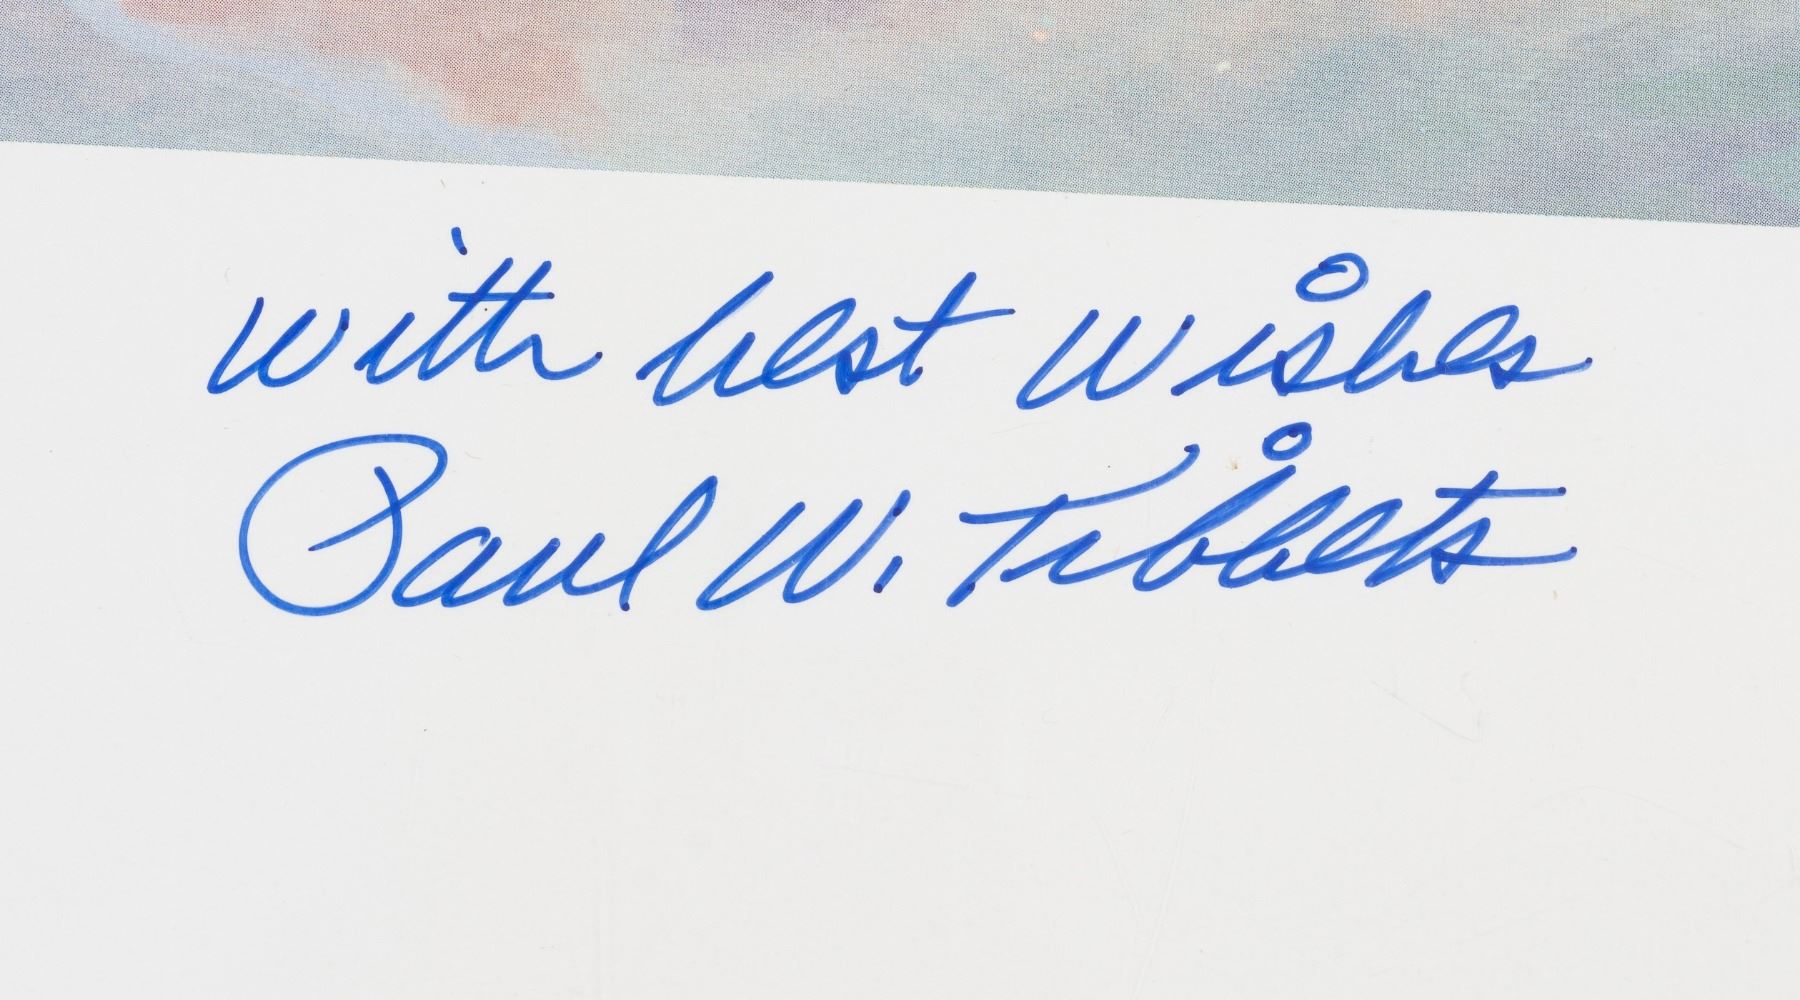 with best wishes
Paul W. Tibbets